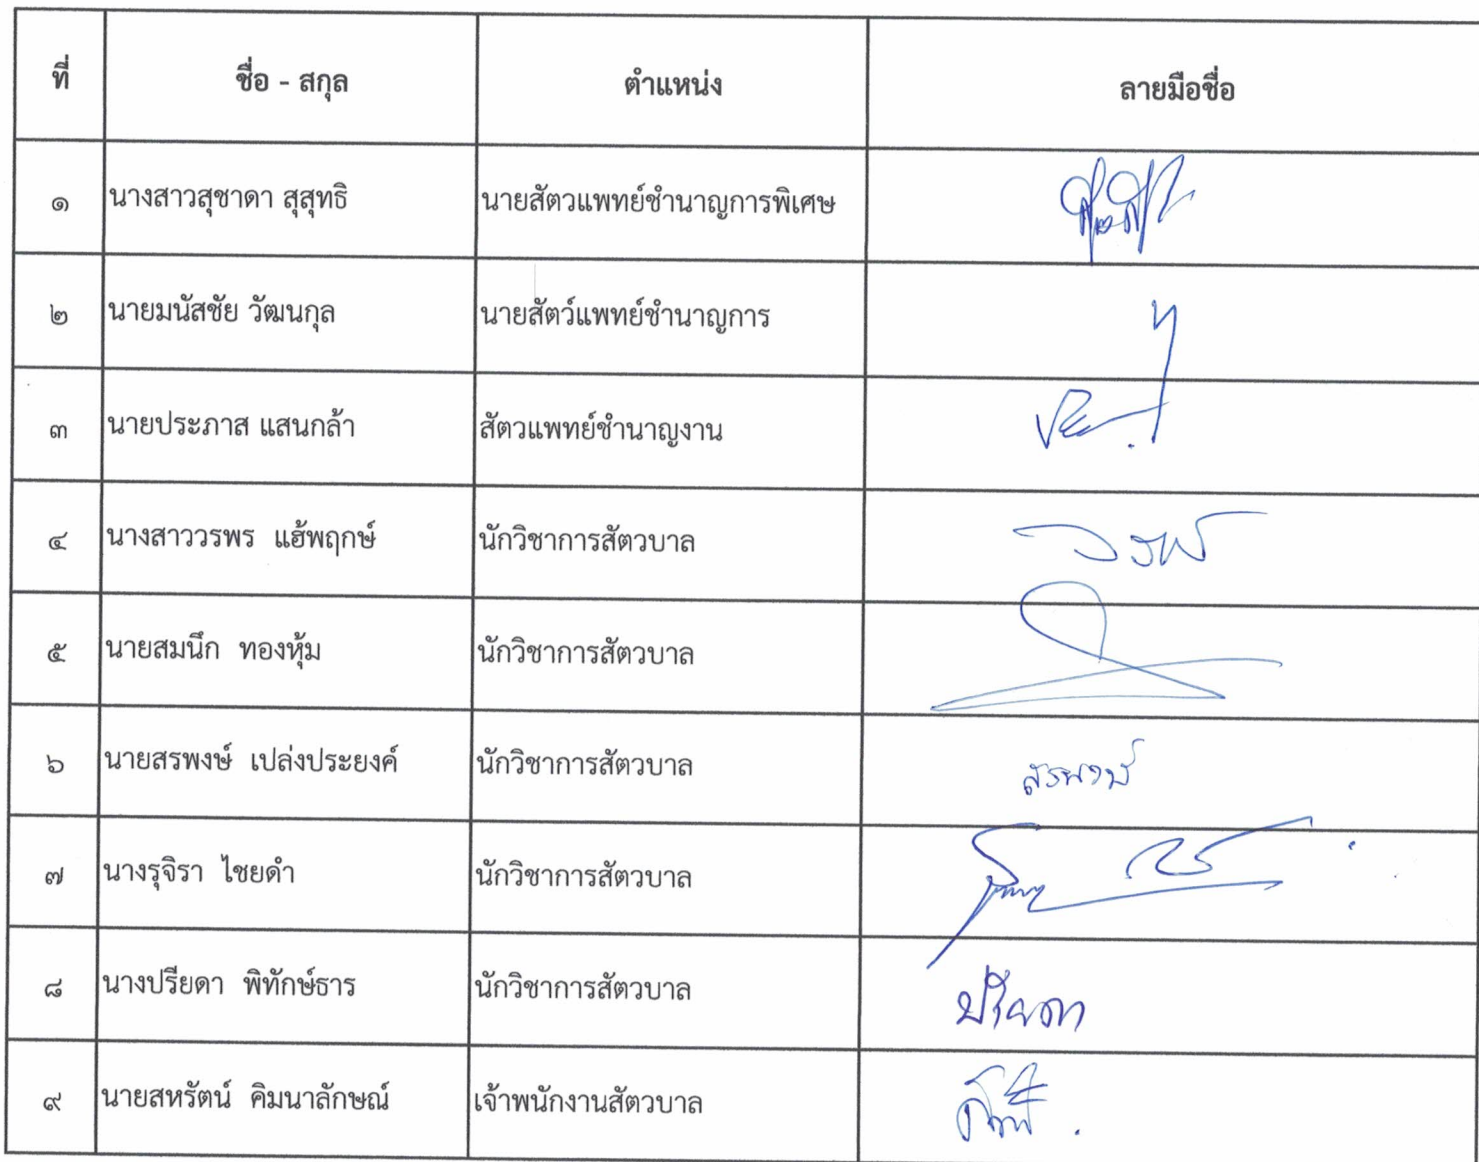 ที่ ชื่อ - สกุล ตำแหน่ง ลายมือชื่อ
๑ นางสาวสุชาดา สุสุทธิ นายสัตวแพทย์ชำนาญการพิเศษ
๒ นายมนัสชัย วัฒนกุล นายสัตว์แพทย์ชำนาญการ
๓ นายประภาส แสนกล้า สัตวแพทย์ชำนาญงาน
๔ นางสาววรพร แฮ้พฤกษ์ นักวิชาการสัตวบาล
๕ นายสมนึก ทองหุ้ม นักวิชาการสัตวบาล
๖ นายสรพงษ์ เปล่งประยงค์ นักวิชาการสัตวบาล สรพงษ์
๗ นางรุจิรา ไชยดำ นักวิชาการสัตวบาล
๘ นางปรียดา พิทักษ์ธาร นักวิชาการสัตวบาล ปรียดา
๙ นายสหรัตน์ คิมนาลักษณ์ เจ้าพนักงานสัตวบาล